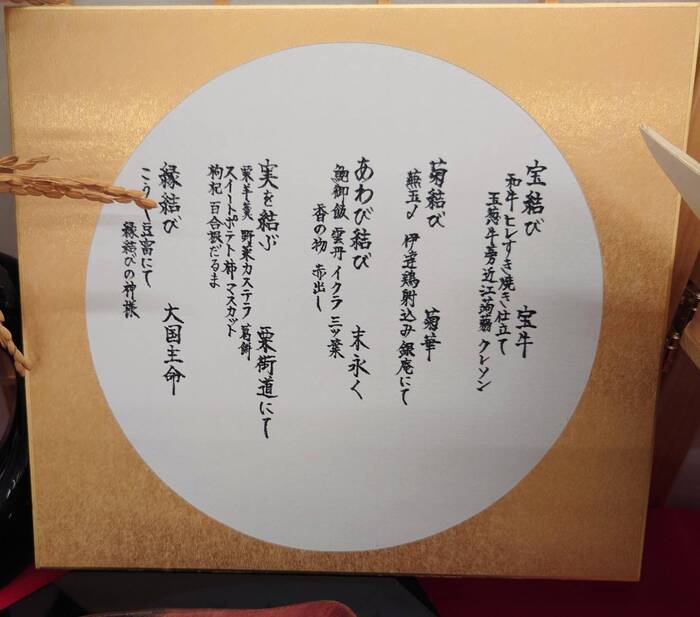 宝結び 宝牛
和牛ヒレすき焼き仕立て
玉葱 牛蒡 近江蒟蒻 クレソン
菊結び 菊華
蕪玉〆 伊達鶏射込み 銀庵にて
あわび結び 末永く
鮑御飯 雲丹 イクラ 三ッ葉
香の物 赤出し
実を結ぶ 栗街道にて
栗羊羹 野菜カステラ 葛餅
スイートポテト 柿 マスカット
枸杞 百合根だるま
縁結び 大国主命
豆富にて
縁結びの神様